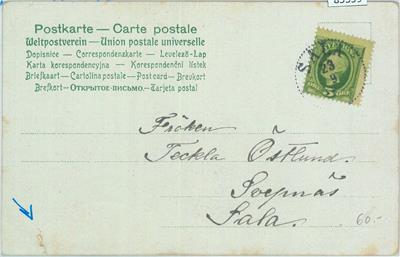 Postkarte — Carte postale
Weltpostverein — Union postale universelle
Dopisnice — Correspondenzkarte — Levelező-Lap
Karta korespondencyjna — Korespondenční lístek
Briefkaart — Cartolina postale — Post card — Brevkort
Brefkort — Открытое письмо — Tarjeta postal
SVERIGE
5
23
9
Fröken
Teckla Östlund.
Svepnäs
Sala.
60.-